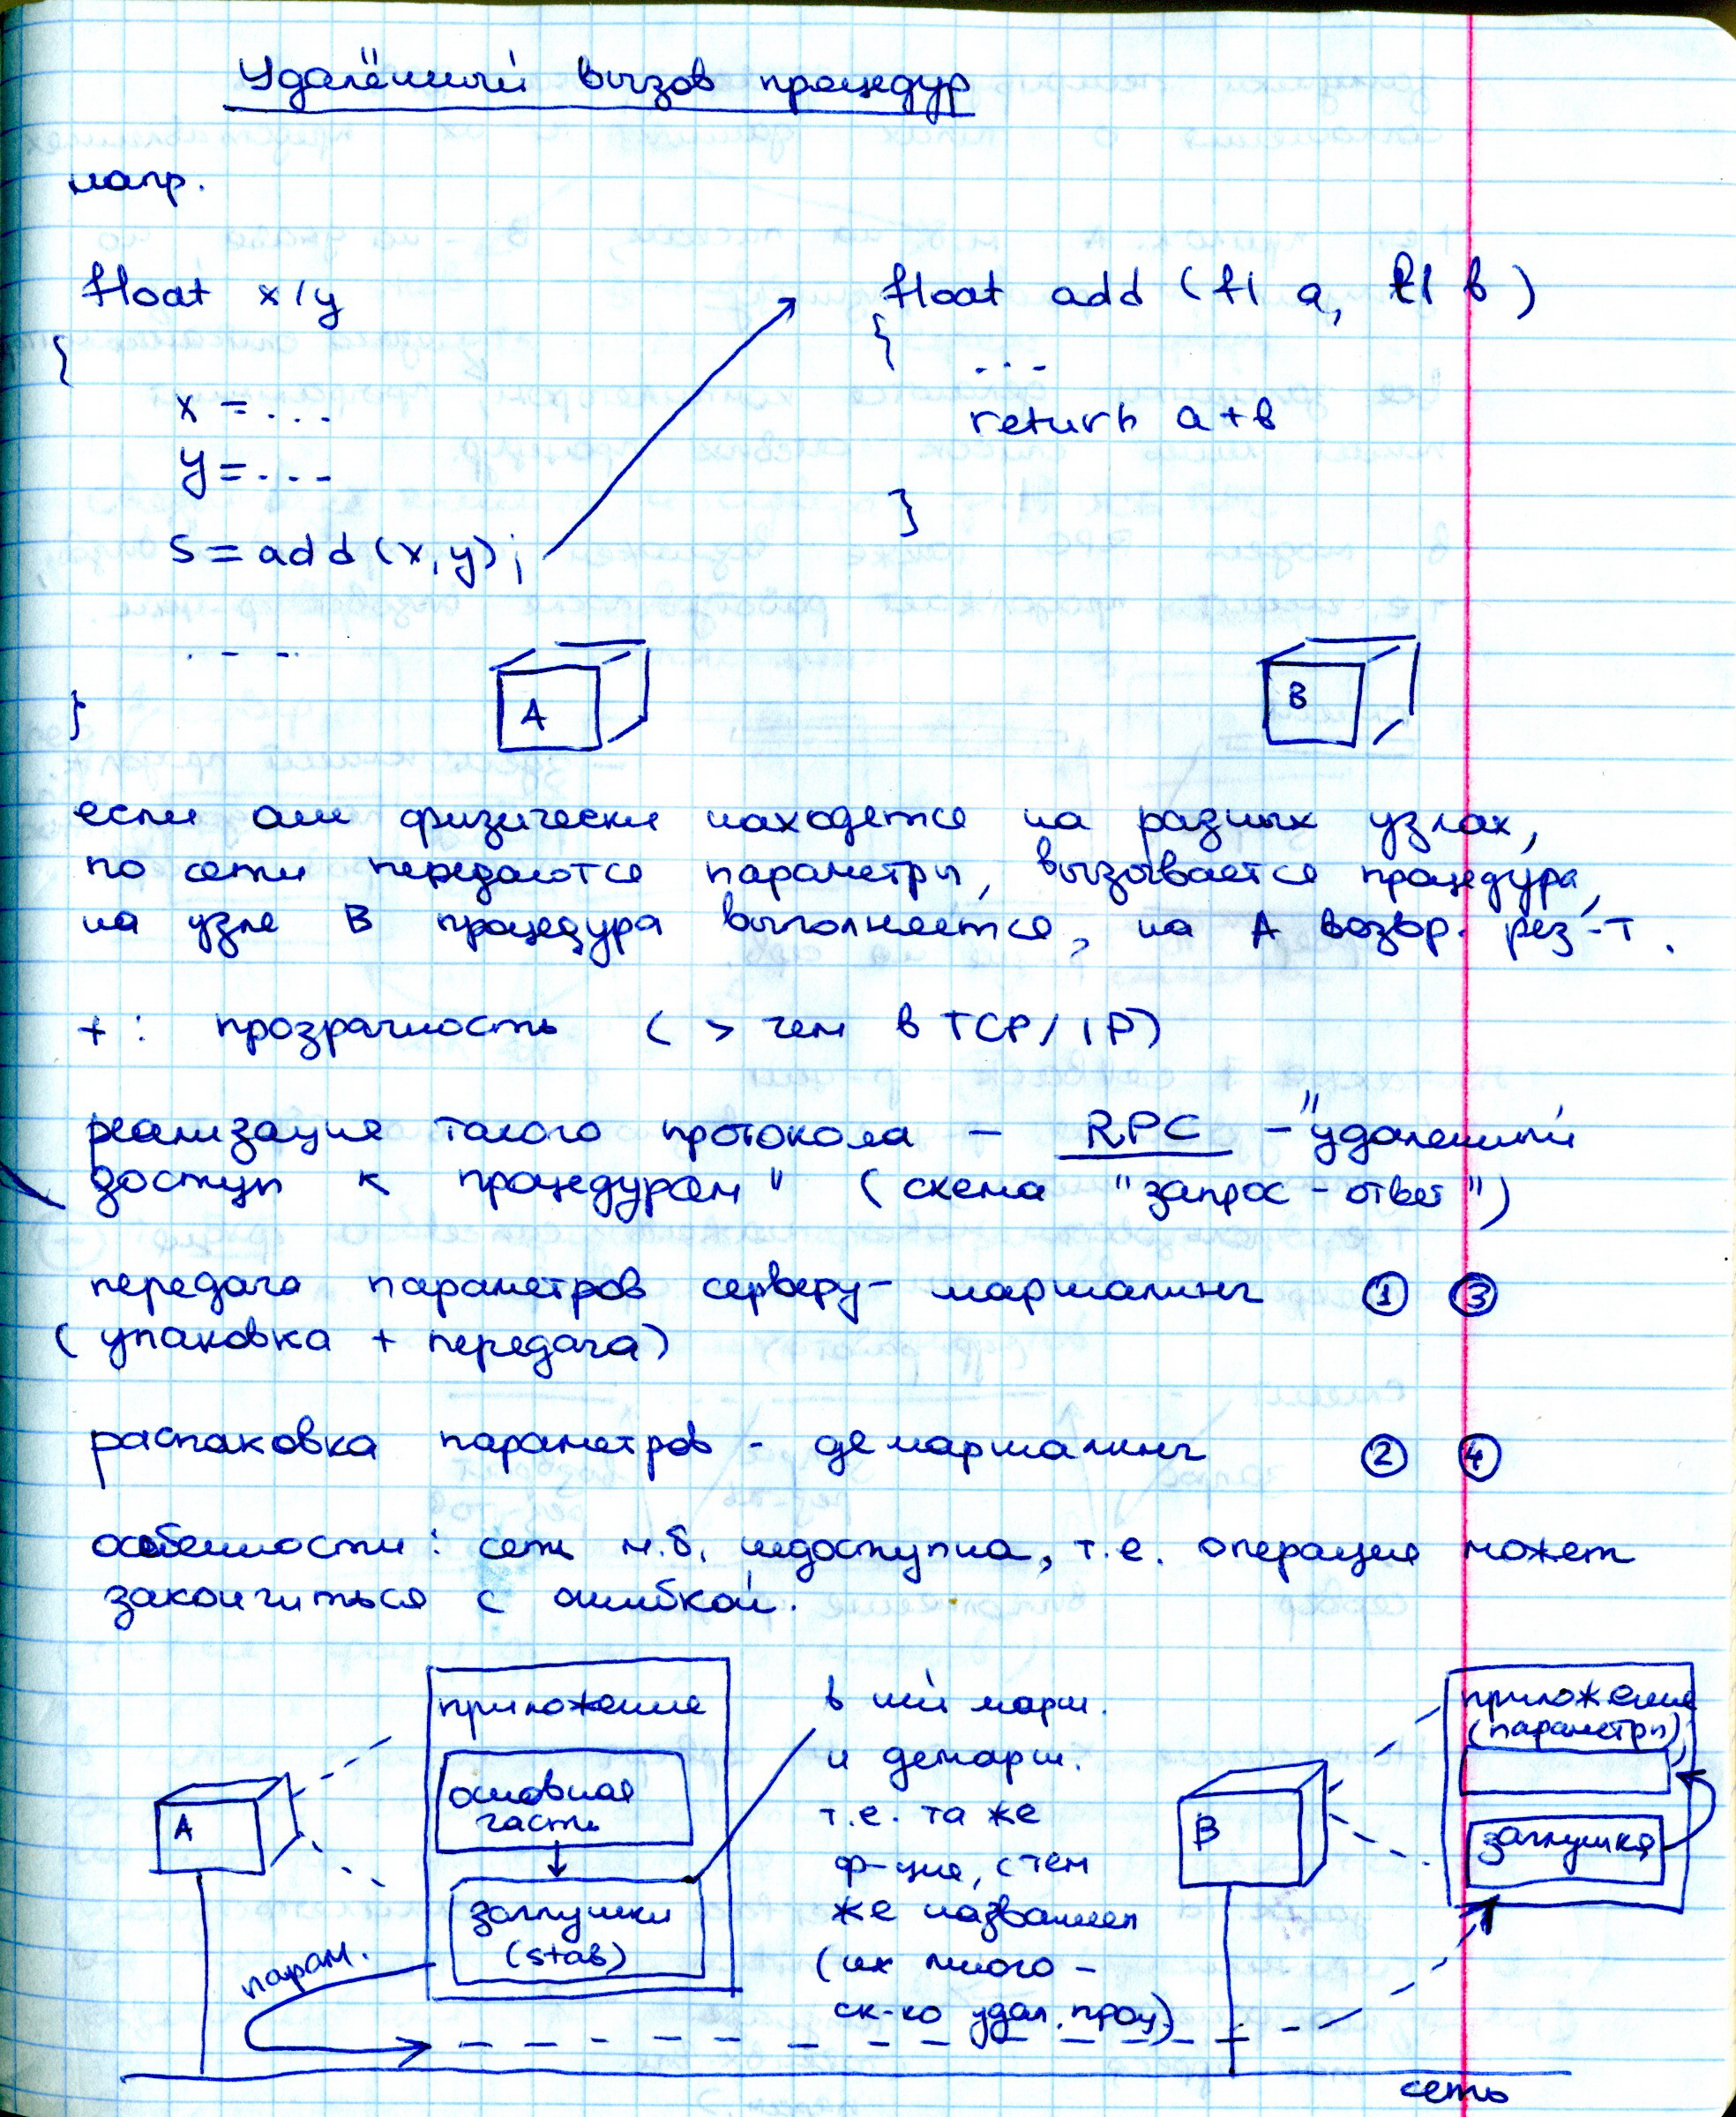 Удалённый вызов процедур
напр.
float x,y
{
x = ...
y = ...
s = add(x,y);
...
}
float add (fl a, fl b)
{
...
return a+b
}
A
B
если они физически находятся на разных узлах,
по сети передаются параметры, вызывается процедура,
на узле B процедура выполняется, на A возвр. рез-т.
+: прозрачность (> чем в TCP/IP)
реализация такого протокола – RPC – "удаленный
доступ к процедурам" (схема "запрос – ответ")
передача параметров серверу – маршалинг ① ③
(упаковка + передача)
распаковка параметров - демаршалинг ② ④
особенности: сеть м.б. недоступна, т.е. операция может
закончиться с ошибкой.
A
приложение
основная
часть
заглушки
(stab)
парам.
в ней марш.
и демарш.
т.е. та же
ф-ция, с тем
же названием
(их много –
ск-ко удал. проц)
B
приложение
(параметры)
заглушка
сеть